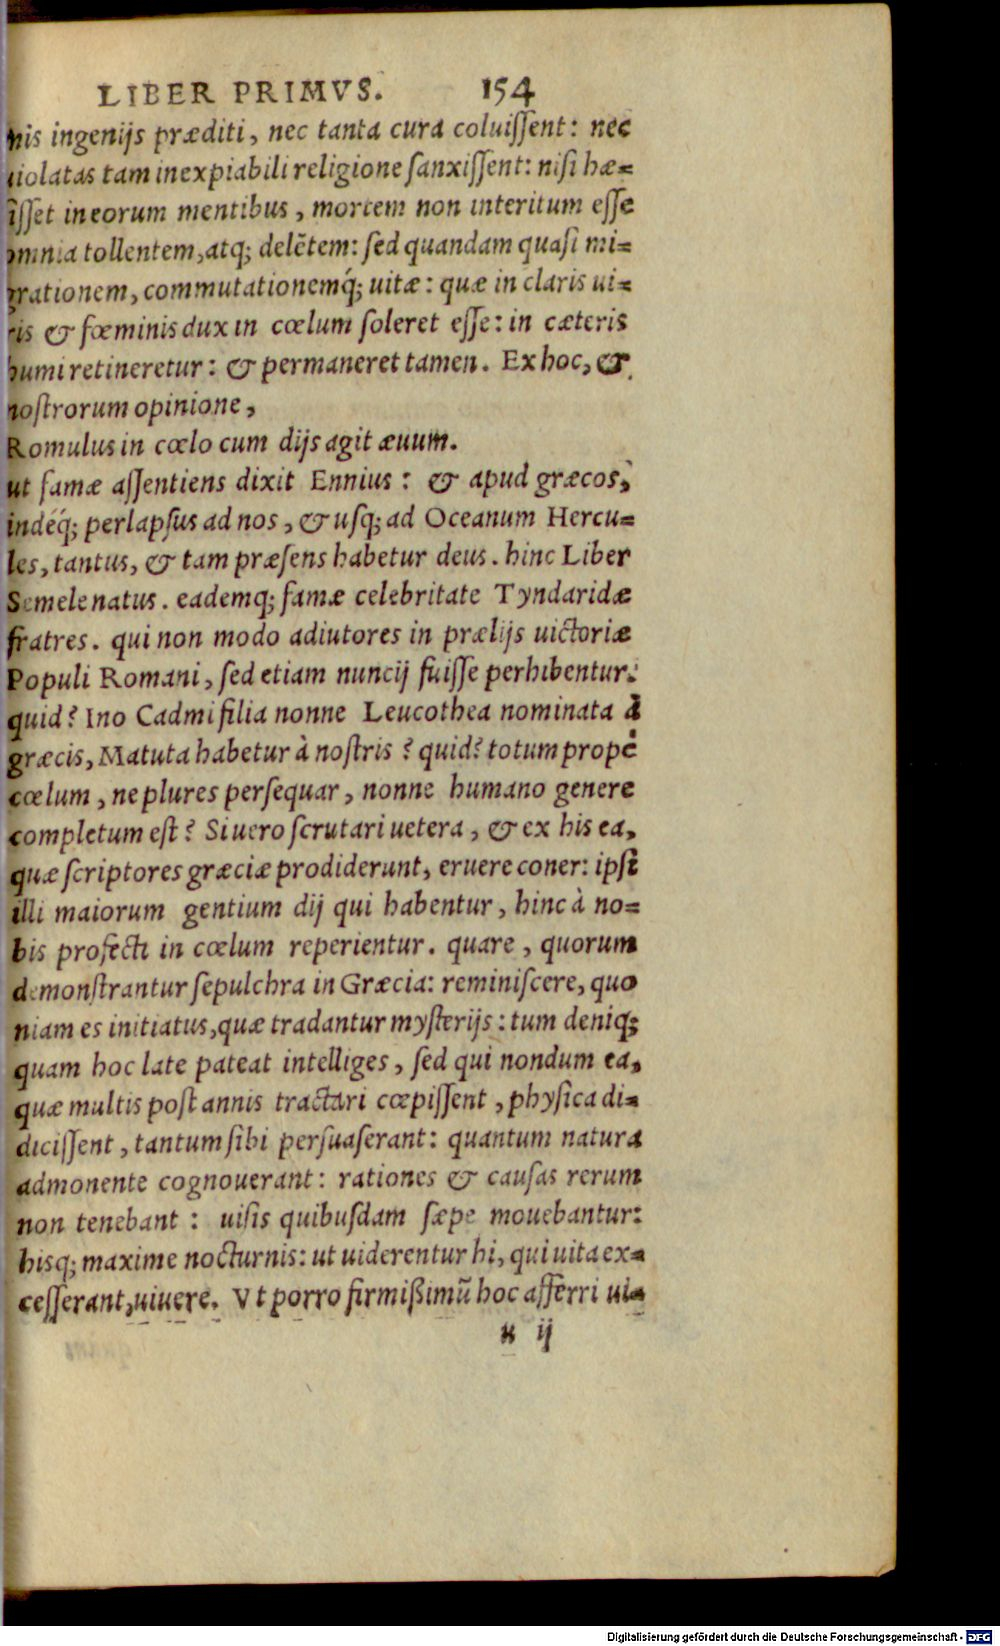 LIBER PRIMVS. 154
nis ingenijs præditi, nec tanta cura coluissent: nec
uiolatas tam inexpiabili religione sanxissent: nisi hæ=
sisset in eorum mentibus, mortem non interitum esse
omnia tollentem, atq; delētem: sed quandam quasi mi=
grationem, commutationemq́; uitæ: quæ in claris ui=
ris & fœminis dux in cœlum soleret esse: in cæteris
humi retineretur: & permaneret tamen. Ex hoc, &
nostrorum opinione,
Romulus in cœlo cum dijs agit æuum.
ut famæ assentiens dixit Ennius: & apud græcos,
indéq́; perlapsus ad nos, & usq; ad Oceanum Hercu=
les, tantus, & tam præsens habetur deus. hinc Liber
Semele natus. eademq; famæ celebritate Tyndaridæ
fratres. qui non modo adiutores in prælijs uictoriæ
Populi Romani, sed etiam nuncij fuisse perhibentur.
quid? Ino Cadmi filia nonne Leucothea nominata à
græcis, Matuta habetur à nostris? quid? totum propè
cœlum, ne plures persequar, nonne humano genere
completum est? Si uero scrutari uetera, & ex his ea,
quæ scriptores græciæ prodiderunt, eruere coner: ipsi
illi maiorum gentium dij qui habentur, hinc à no=
bis profecti in cœlum reperientur. quare, quorum
demonstrantur sepulchra in Græcia: reminiscere, quo
niam es initiatus, quæ tradantur mysterijs: tum deniq;
quam hoc late pateat intelliges, sed qui nondum ea,
quæ multis post annis tractari cœpissent, physica di=
dicissent, tantum sibi persuaserant: quantum natura
admonente cognouerant: rationes & causas rerum
non tenebant: uisis quibusdam sæpe mouebantur:
hisq; maxime nocturnis: ut uiderentur hi, qui uita ex=
cesserant, uiuere. Vt porro firmißimū hoc afferri ui=
x ij
Digitalisierung gefördert durch die Deutsche Forschungsgemeinschaft - DFG